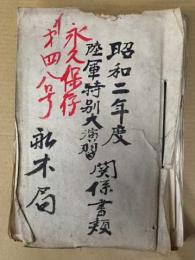 昭和二年度
陸軍特別大演習関係書類
永久保存
第四八号
船木局